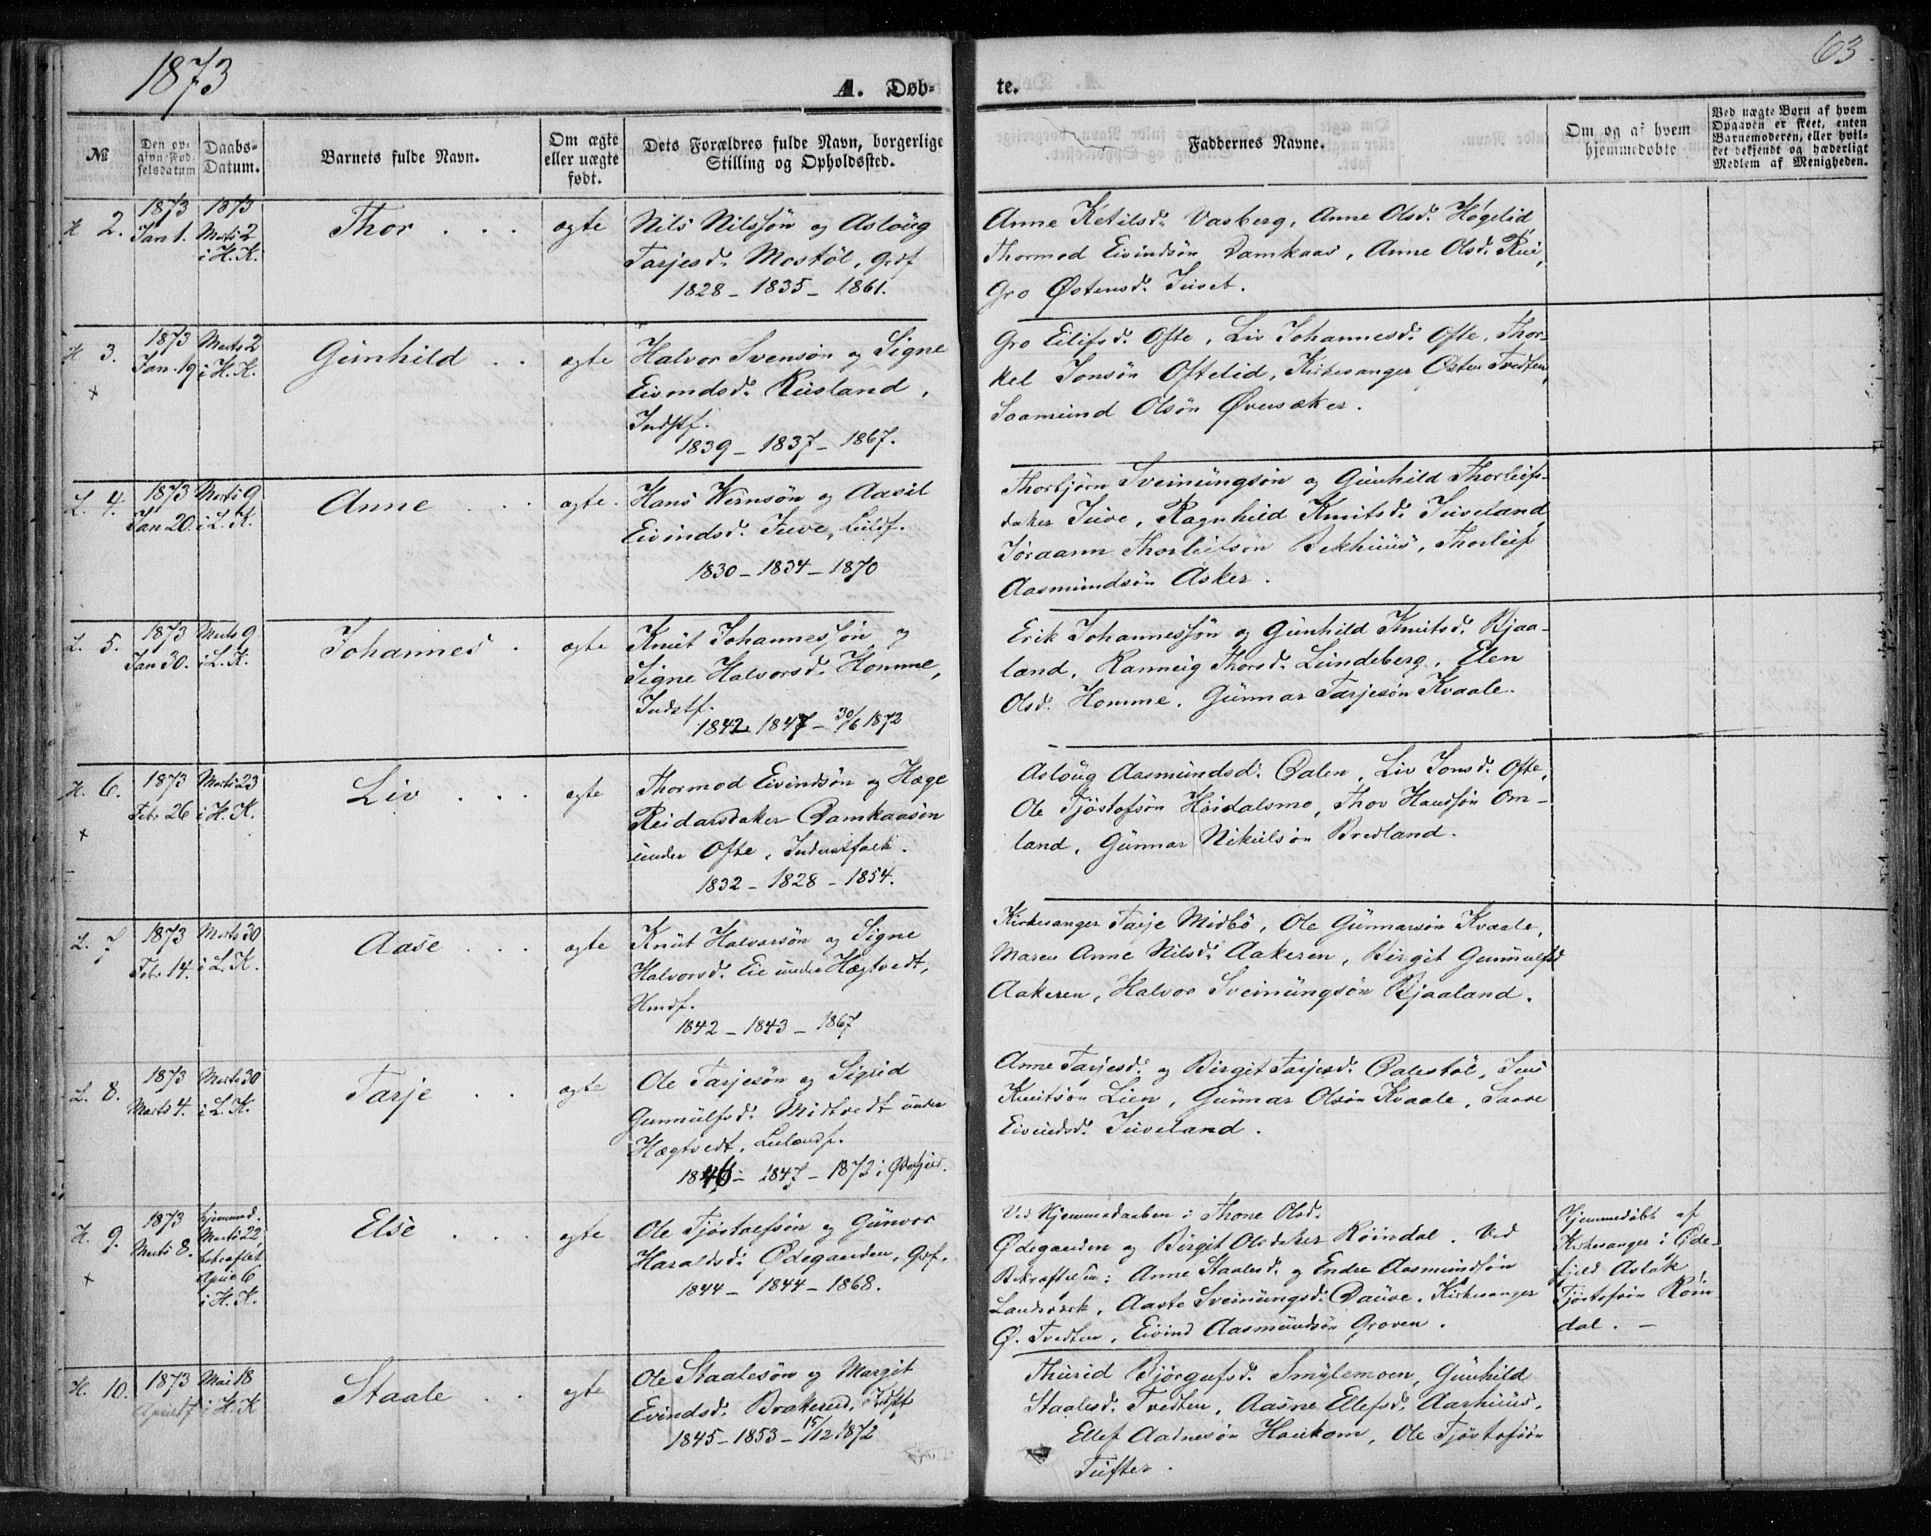 1873
A. Døb-
te.
63
№
Den op-
givne Fød-
selsdatum
Daabs-
Datum.
Barnets fulde Navn.
Om ægte
eller uægte
født.
Dets Forældres fulde Navn, borgerlige
Stilling og Opholdssted.
Faddernes Navne.
Om og af hvem
hjemmedøbte
Ved uægte Børn af hvem
Opgaven er skeet, enten
Barnemoderen, eller hvil-
ket bekjendt og hæderligt
Medlem af Menigheden.
H. 2.
1873
Jan 1.
1873
Marts 2
i H. K.
Thor
ægte
Nils Nilssøn og Aslaug
Tarjesd. Mostøl, Grdf
1828 - 1835 - 1861.
Anne Ketilsd. Vasberg, Anne Olsd. Høgelid
Thormod Eivindsøn Damkaas, Anne Olsd. Rui,
Gro Østensd. Juset.
H. 3.
+
1873
Jan. 19
Marts 2
i H. K.
Gunhild
ægte
Halvor Svensøn og Signe
Eivindsd. Rusland,
Indstf.
1839 - 1837 - 1867.
Gro Eilifsd. Ofte, Liv Johannesd. Ofte, Thor-
kel Jonsøn Oftelid, Kirkesanger Østen Tvedten,
Saamund Olsøn Øversaker.
L. 4.
1873
Jan 20.
Marts 9
i L. K.
Anne
ægte.
Hans Wernsøn og Aasil
Eivindsd. Juve, Leildf.
1830 - 1834 - 1870
Thorbjørn Sveinungsøn og Gunhild Thorleifs-
datter Juve, Ragnhild Knutsd. Juveland,
Jøraann Thorleifsøn Bekhuus, Thorleif
Aasmundsøn Asker.
L. 5.
1873
Jan 30.
Marts 9
i L. K.
Johannes
ægte
Knut Johannessøn og
Signe Halvorsd. Homme,
Indstf.
1842 - 1847 - 30/6 1872
Erik Johannessøn og Gunhild Knutsd. Bjaa-
land, Ranneig Thorsd. Lundeberg, Elen
Olsd. Homme, Gunnar Tarjesøn Kvaale.
H. 6.
+
1873
Febr 26
Marts 23
i H. K.
Liv
ægte
Thormod Eivindsøn og Hæge
Reidarsdatter Damkaasen
under Ofte, Inderstfolk.
1832 - 1828 - 1854.
Aslaug Aasmundsd. Dalen, Liv Jonsd. Ofte,
Ole Tjøstofsøn Høidalsmo, Thor Hanssøn Om-
land, Gunnar Nikulsøn Bredland.
L. 7
1873
Febr 14.
Marts 30
i L. K.
Aase
ægte
Knut Halvorsøn og Signe
Halvorsd. Eie under Hægtvedt,
Hmdf.
1842 - 1843 - 1867
Kirkesanger Tarje Midbø, Ole Gunnarsøn Kvaale,
Maren Anne Nilsd. Aakeren, Birgit Gunnulfsd
Aakeren, Halvor Sveinungsøn Bjaaland.
L. 8.
1873
Marts 4.
Marts 30
i L. K.
Tarje
ægte
Ole Tarjesøn og Sigrid
Gunnulfsd. Midtvedt under
Hægtvedt, Leilændf.
1846 - 1847 - 1872 i Ødefjeld.
Anne Tarjesd. og Birgit Tarjesd. Dalestøl, Jens
Knutsøn Lien, Gunnar Olsøn Kvaale, Saave
Eivindsd. Juveland.
H. 9.
+
1873
Marts 8.
hjemmed.
Marts 22,
bekræftet
April 6
i H. K.
Else
ægte
Ole Tjøstolfsøn og Gunvor
Haraldsd. Ødegaarden, Grdf.
1844 - 1844 - 1868.
Ved Hjemmedaaben: Thone Olsd.
Ødegaarden og Birgit Olsdatter Røimdal. Ved
Bekræftelsen: Anne Staalesd. og Endre Aasmundsøn
Landsverk, Aaste Sveinungsd. Dauve, Kirkesanger
Ø. Tvedten, Eivind Aasmundsøn Groven.
Hjemmedøbt af
Kirkesanger i Øde-
fjeld Aslak
Tjøstofsøn Røim
dal. -
H. 10.
1873
April
Mai 18
i H. K
Staale
ægte
Ole Staalesøn og Margit
Evindsd. Brakerud, Indstf
1845 - 1853 - 15/12 1872
Thurid Bjørgufsd. Smylemoen, Gunhild
Staalesd. Tvedten, Aasne Ellefsd. Aarhuus,
Ellef Aadnesøn Haukom, Ole Tjøstofsøn
Tufter.